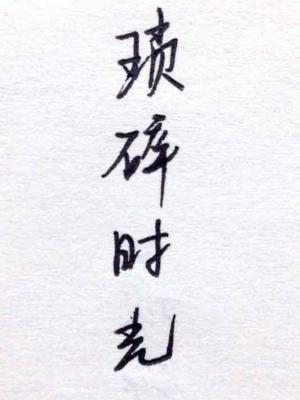 琐碎时光